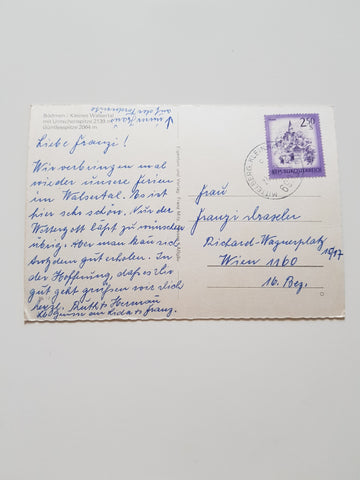 Bödmen / Kleines Walsertal
mit Unterschelspitze 2139 m
Güntlesspitze 2064 m
auf der Vorderseite
unser Haus
Liebe Franzi!
Wir verbringen mal
wieder unsere Ferien
im Walsertal. Es ist
hier sehr schön. Nur der
Wettergott läßt zu wünschen
übrig. Aber man kann sich
trotzdem gut erholen. In
der Hoffnung, daß es Dir
gut geht grüßen wir Dich
herzl. Ruth + Hermann
2,50
S
REPUBLIK ÖSTERREICH
Frau
Franzi
Richard-Wagnerplatz
16/17
Wien 1160
16. Bez.